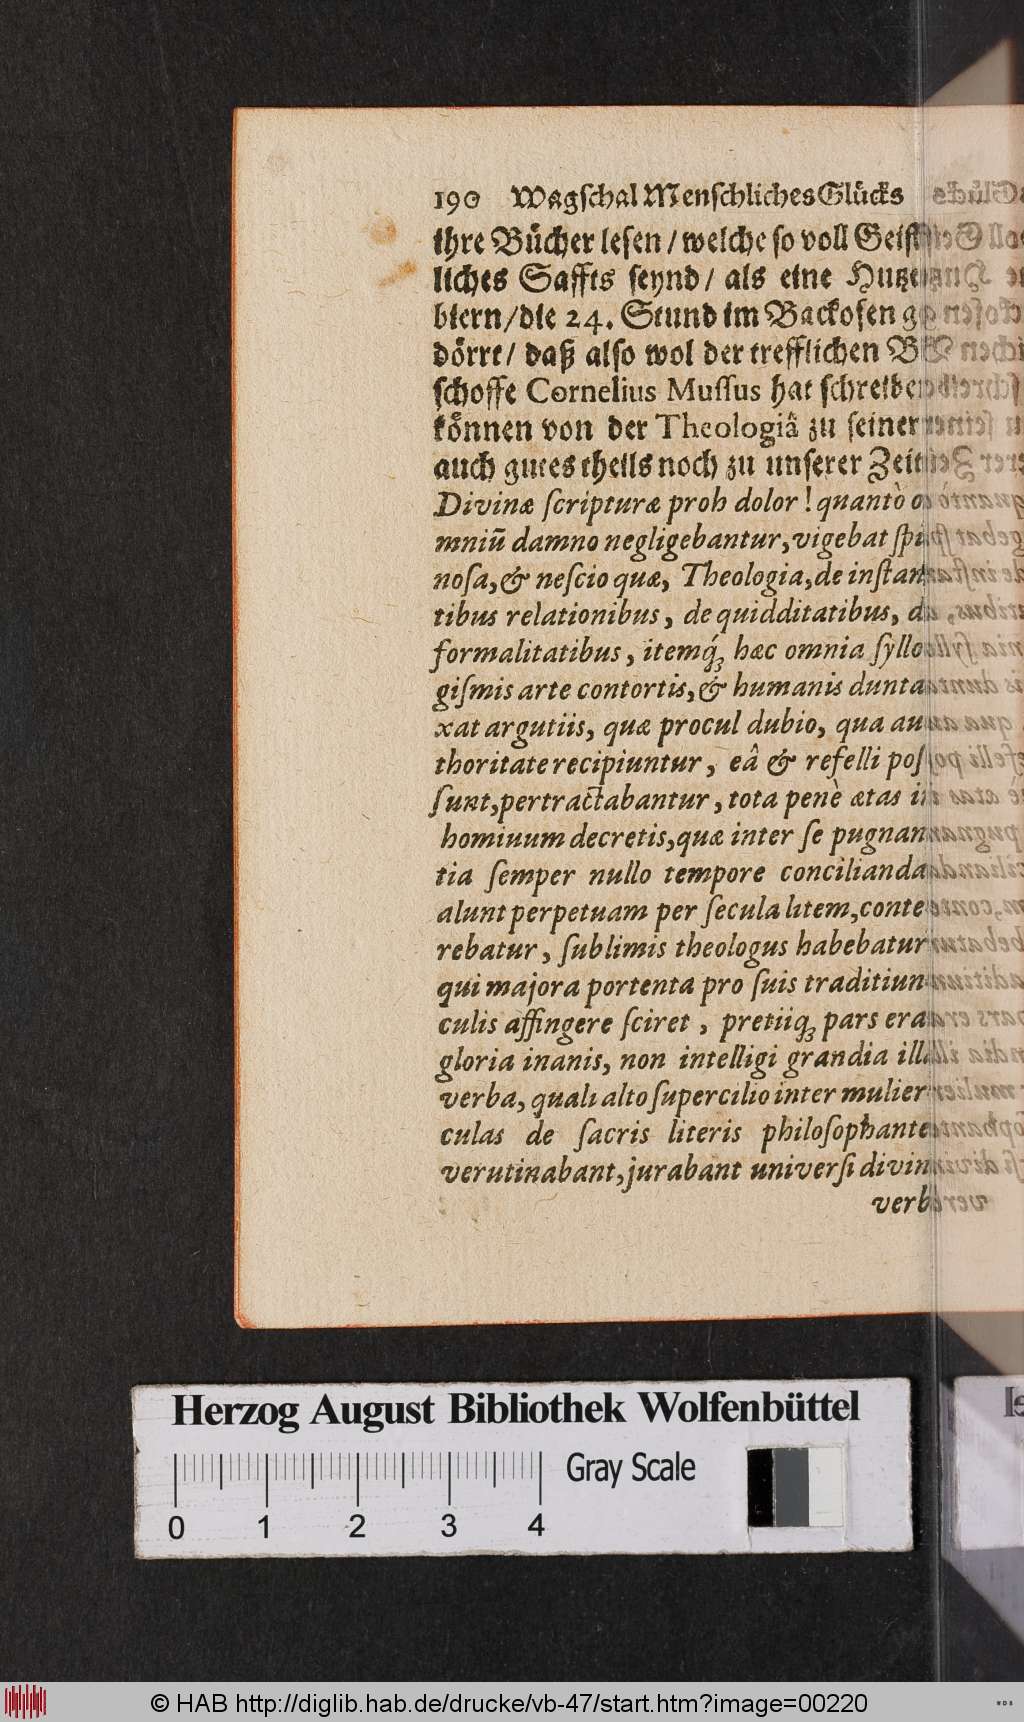 190 Wagschal Menschliches Glücks
ihre Bücher lesen / welche so voll Geist
liches Saffts seynd / als eine Hutzel
biern / die 24. Stund im Backofen ge
dörrt / daß also wol der trefflichen Bi
schoffe Cornelius Mussus hat schreiben
können von der Theologiâ zu seiner
auch gutes theils noch zu unserer Zeit
Divinæ ſcripturæ proh dolor! quantò o
mniũ damno negligebantur, vigebat ſpi
noſa, & neſcio quæ, Theologia, de inſtan
tibus relationibus, de quidditatibus, de
formalitatibus, itemq́; hæc omnia ſyllo
giſmis arte contortis, & humanis dunta
xat argutiis, quæ procul dubio, qua au
thoritate recipiuntur, eâ & refelli poſ
ſunt, pertractabantur, tota penè ætas in
homiuum decretis, quæ inter ſe pugnan
tia ſemper nullo tempore concilianda
alunt perpetuam per ſecula litem, conte
rebatur, ſublimis theologus habebatur
qui majora portenta pro ſuis traditiun
culis affingere ſciret, pretiiq; pars erat
gloria inanis, non intelligi grandia illa
verba, quali alto ſupercilio inter mulier
culas de ſacris literis philoſophantes
verutinabant, jurabant univerſi divin
verb
Herzog August Bibliothek Wolfenbüttel
Gray Scale
0 1 2 3 4
© HAB http://diglib.hab.de/drucke/vb-47/start.htm?image=00220